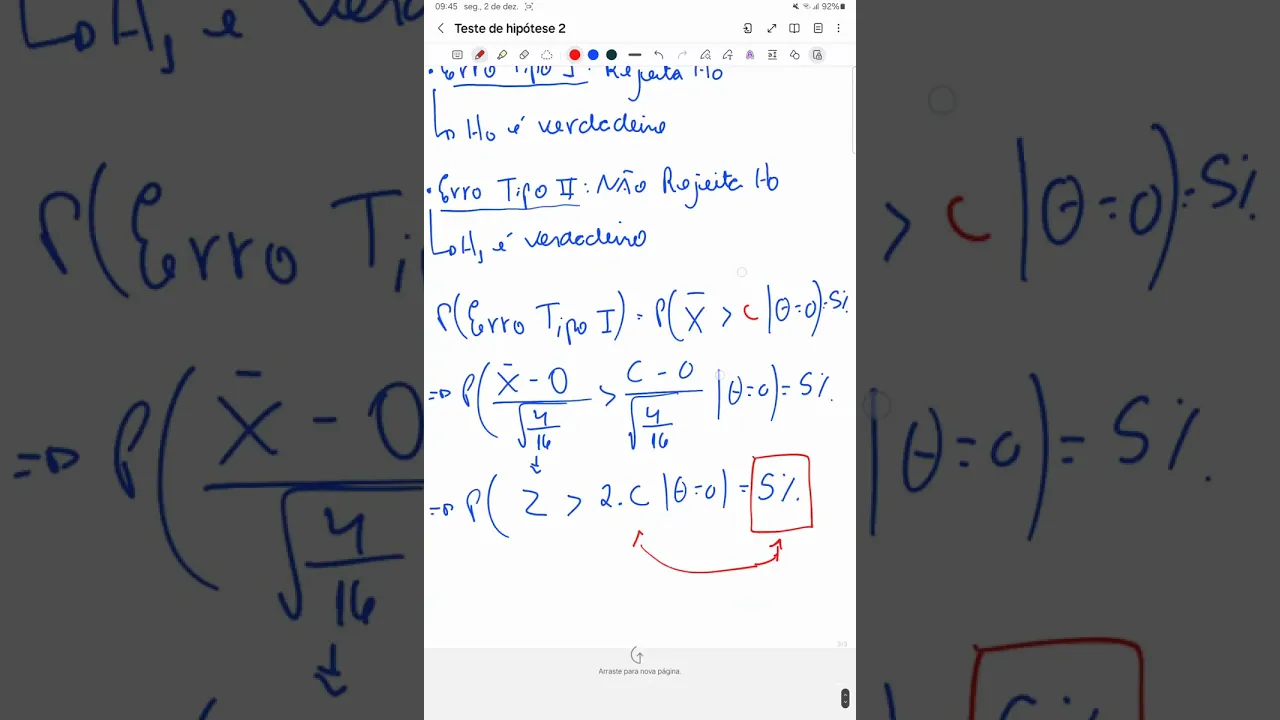 09:45 seg., 2 de dez. 92%
Teste de hipótese 2
• Erro Tipo I: Rejeita H0
↳ H0 é verdadeiro
• Erro Tipo II: NÃO Rejeita H0
↳ H1 é verdadeiro
P(Erro Tipo I) = P(X̄ > C | θ=0) = 5%
=> P( (X̄ - 0)/√(4/16) > (C - 0)/√(4/16) | θ=0) = 5%.
=> P( Z > 2.C | θ=0) = 5%.
Arraste para nova página.
↳ H1 é verdadeiro
P(Erro Ti > C | θ=0) = 5%
=> P( X̄ - 0 / √(4/16) | θ=0) = 5%.